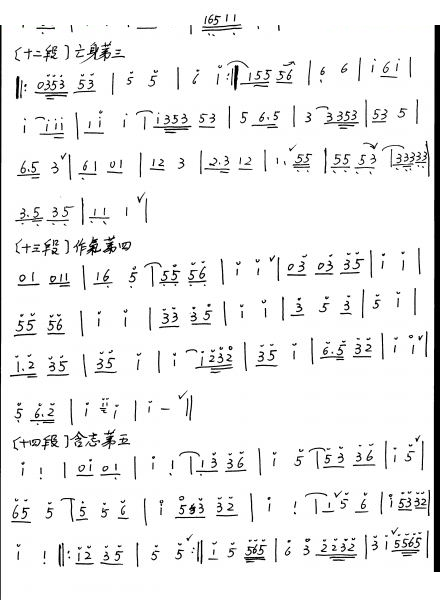 1651 1
[十二段] 亡身第三
‖: 0353 53 | 5 5 | i i :‖ 155 56 | 6 6 | i 6 i |
i iii | 1 i i | i353 53 | 5 6.5 | 3 3353 | 53 5 |
6.5 3 | 61 01 | 12 3 | 2.3 12 | 1. 55 | 55 53 | 33333 |
3.5 35 | 11 1 ‖
[十三段] 作氣第四
01 011 | 16 5 | 55 56 | i i | 03 03 35 | i i |
55 56 | i i | 33 35 | i i | 3 5 3 | 5 i |
1.2 35 | 35 i | i i232 | 35 i | 6.5 32 | i i |
5 6.2 | i i i | i – ‖
[十四段] 含志第五
i ! | 0i 01 | i ! | 13 36 | i 5 | 53 36 | i 5 |
65 5 | 5 5 6 | i 543 32 | i ! | 15 6 | i5332 |
i ! ‖: i2 35 | 5 5 :‖ i 5 565 | 6 3 2232 | 3 i 5565 |